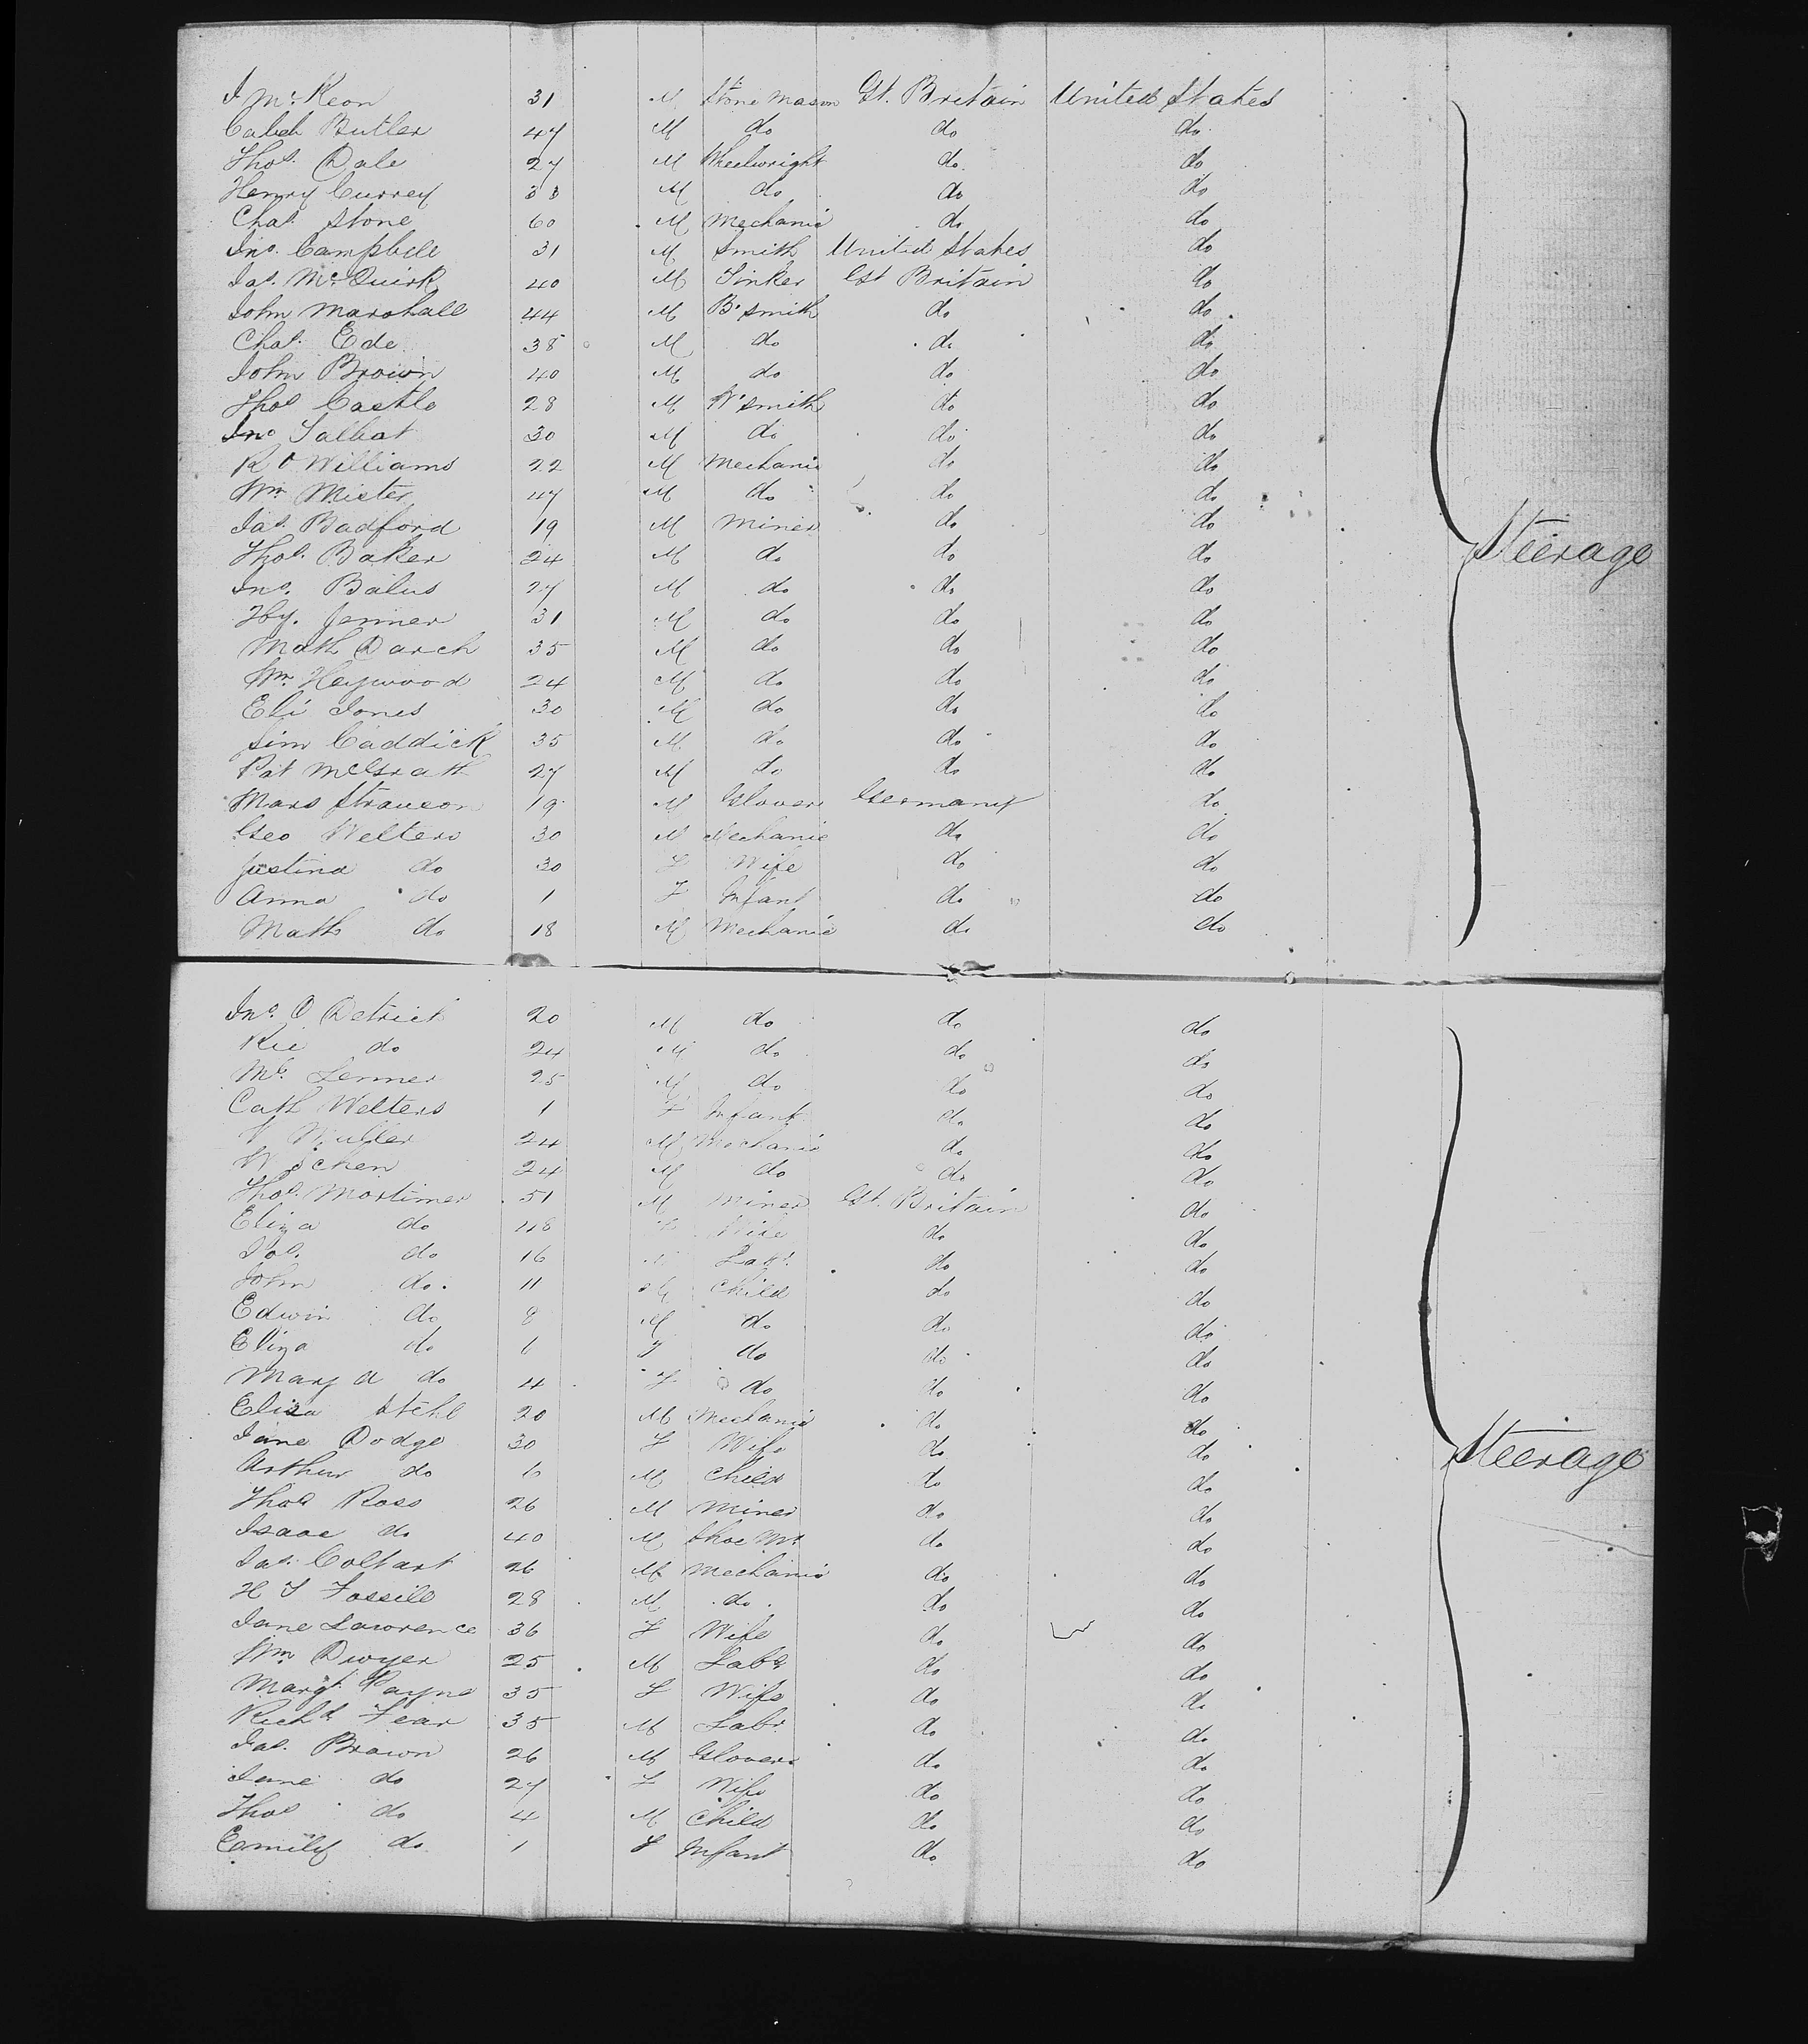 J McKeon 31 M Stone Mason Gt. Britain United States
Caleb Butler 47 M do do do
Thos. Dale 27 M Wheelwright do do
Henry Currey 33 M do do do
Chas. Stone 60 M Mechanic do do
Jno. Campbell 31 M Smith United States do
Jas. McQuirk 40 M Tinker Gt Britain do
John Marshall 44 M B'smith do do
Chas. Ede 38 M do do do
John Brown 40 M do do do
Thos Castle 28 M W'smith do do
Jno Talbot 30 M do do do
R O Williams 22 M Mechanic do do
Wm Mister 47 M do do do
Jas. Badford 19 M Miner do do
Thos. Baker 24 M do do do
Jno. Balus 27 M do do do
Hy. Jenner 31 M do do do
Math Darch 35 M do do do
Wm. Heywood 24 M do do do
Eli Jones 30 M do do do
Sim Caddick 35 M do do do
Pat McGrath 27 M do do do
Mars 19 M Glover Germany do
Geo Welters 30 M Mechanic do do
Justina do 30 F Wife do do
Anna do 1 F Infant do do
Math do 18 M Mechanic do do
Steerage
Jno. O Detrick 20 M do do do
Ric do 24 M do do do
Lenner 25 M do do do
Cath Welters 1 F Infant do do
V Muller 24 M Mechanic do do
W 24 M do do do
Thos. Mortimer 51 M Miner Gt. Britain do
Eliza do 48 F Wife do do
Jas. do 16 M Labr. do do
John do. 11 M Child do do
Edwin do 8 M do do do
Eliza do 6 F do do do
Mary A do 4 F do do do
Eliza 20 M Mechanic do do
Jane Dodge 30 F Wife do do
Arthur do 6 M Child do do
Thos Ross 26 M Miner do do
Isaac do 40 M Shoe Mr. do do
Jas. Coltart 26 M Mechanic do do
H T Fossill 28 M do. do do
Jane Lawrence 36 F Wife do do
Wm Dwyer 25 M Labr do do
Margt. Payne 35 F Wife do do
Richd. Fear 35 M Labr do do
Jas. Brown 26 M Glover do do
Jane do 27 F Wife do do
Thos do 4 M Child do do
Emily do 1 F Infant do do
Steerage